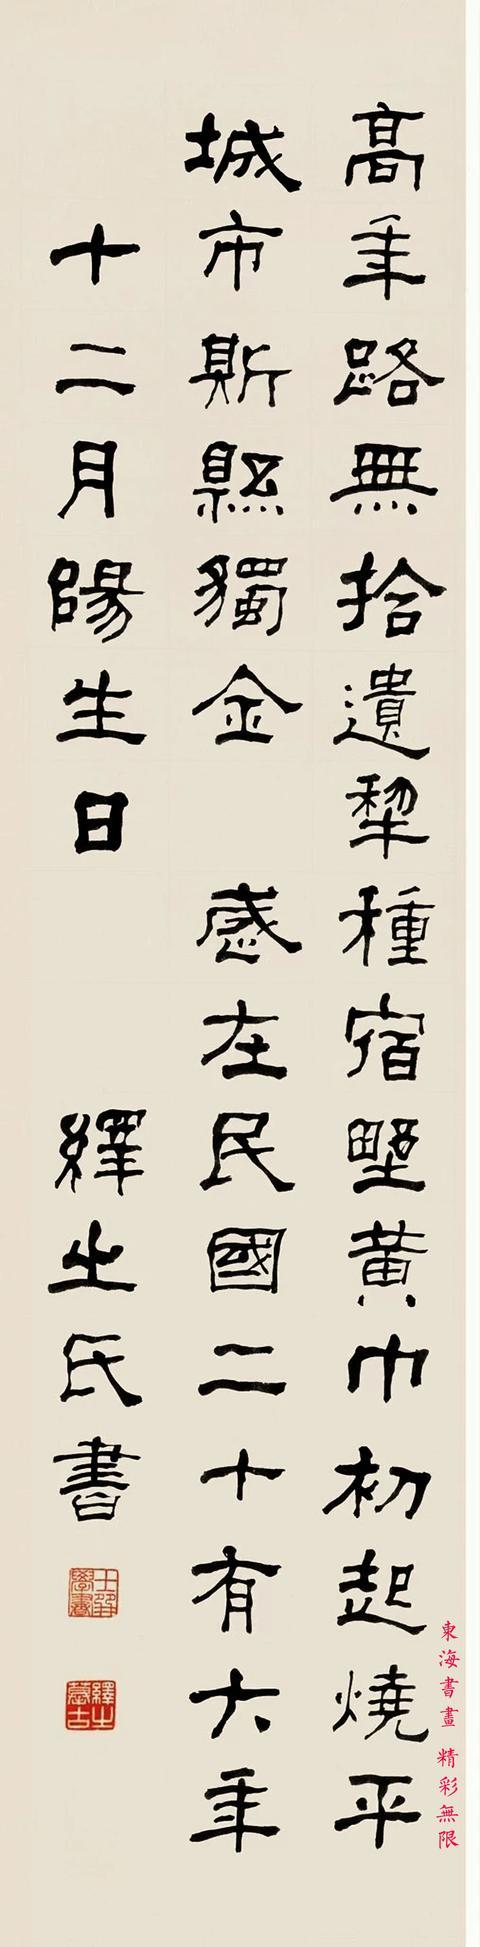 高年路無拾遺犂種宿墅黃巾初起燒平
城市斯縣獨金 歲在民國二十有六年
十二月陽生日 繹之氏書
東海書畫 精彩無限